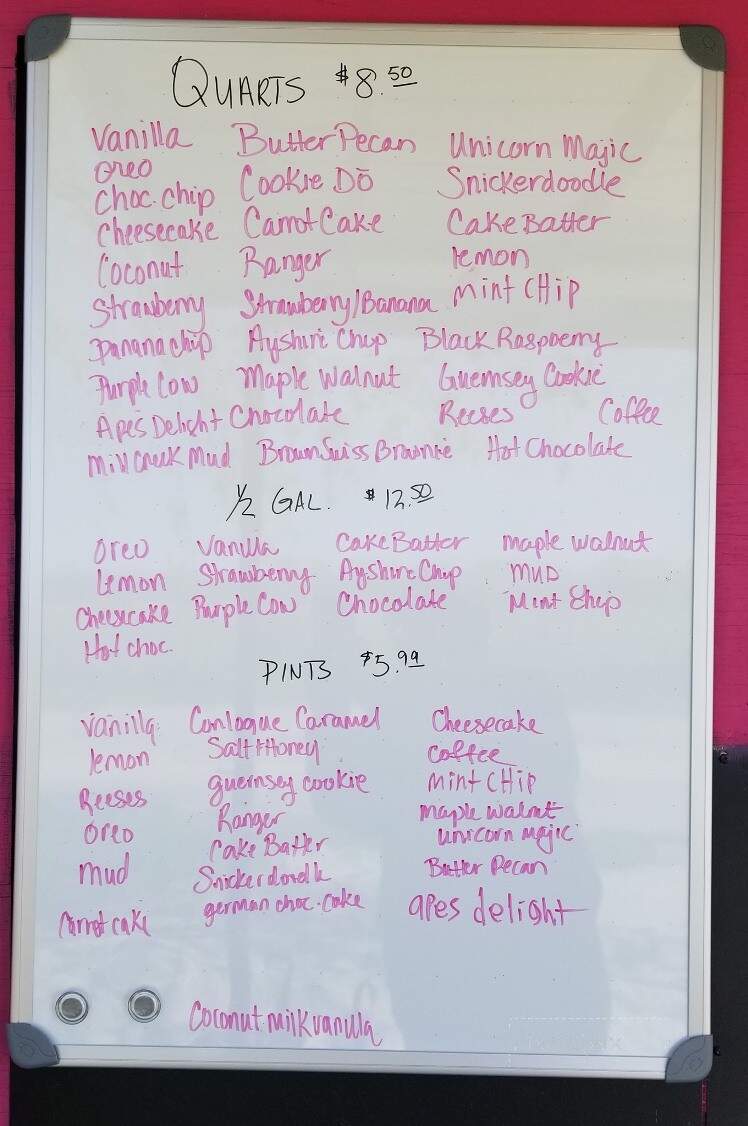 QUARTS $8.50
Vanilla Butter Pecan Unicorn Majic
Oreo Cookie Dō Snickerdoodle
Choc. Chip Carrot Cake Cake Batter
Cheesecake Ranger lemon
Coconut Strawberry/Banana mint CHip
Strawberry Ayshire Chip Black Raspberry
Banana chip Maple Walnut Guernsey Cookie
Purple Cow Chocolate Reeses Coffee
Apes Delight Brown Swiss Brownie Hot Chocolate
Mill Creek Mud
1/2 GAL. $12.50
Oreo Vanilla Cake Batter maple walnut
Lemon Strawberry Ayshire Chip MUD
Cheesecake Purple Cow Chocolate Mint Chip
Hot choc.
PINTS $5.99
Vanilla Conlogue Caramel Cheesecake
lemon Salt & Honey coffee
Reeses guernsey cookie mint CHip
Oreo Ranger maple walnut
mud Cake Batter unicorn majic
Carrot cake Snickerdoodle Butter Pecan
german choc. cake apes delight
Coconut milk vanilla